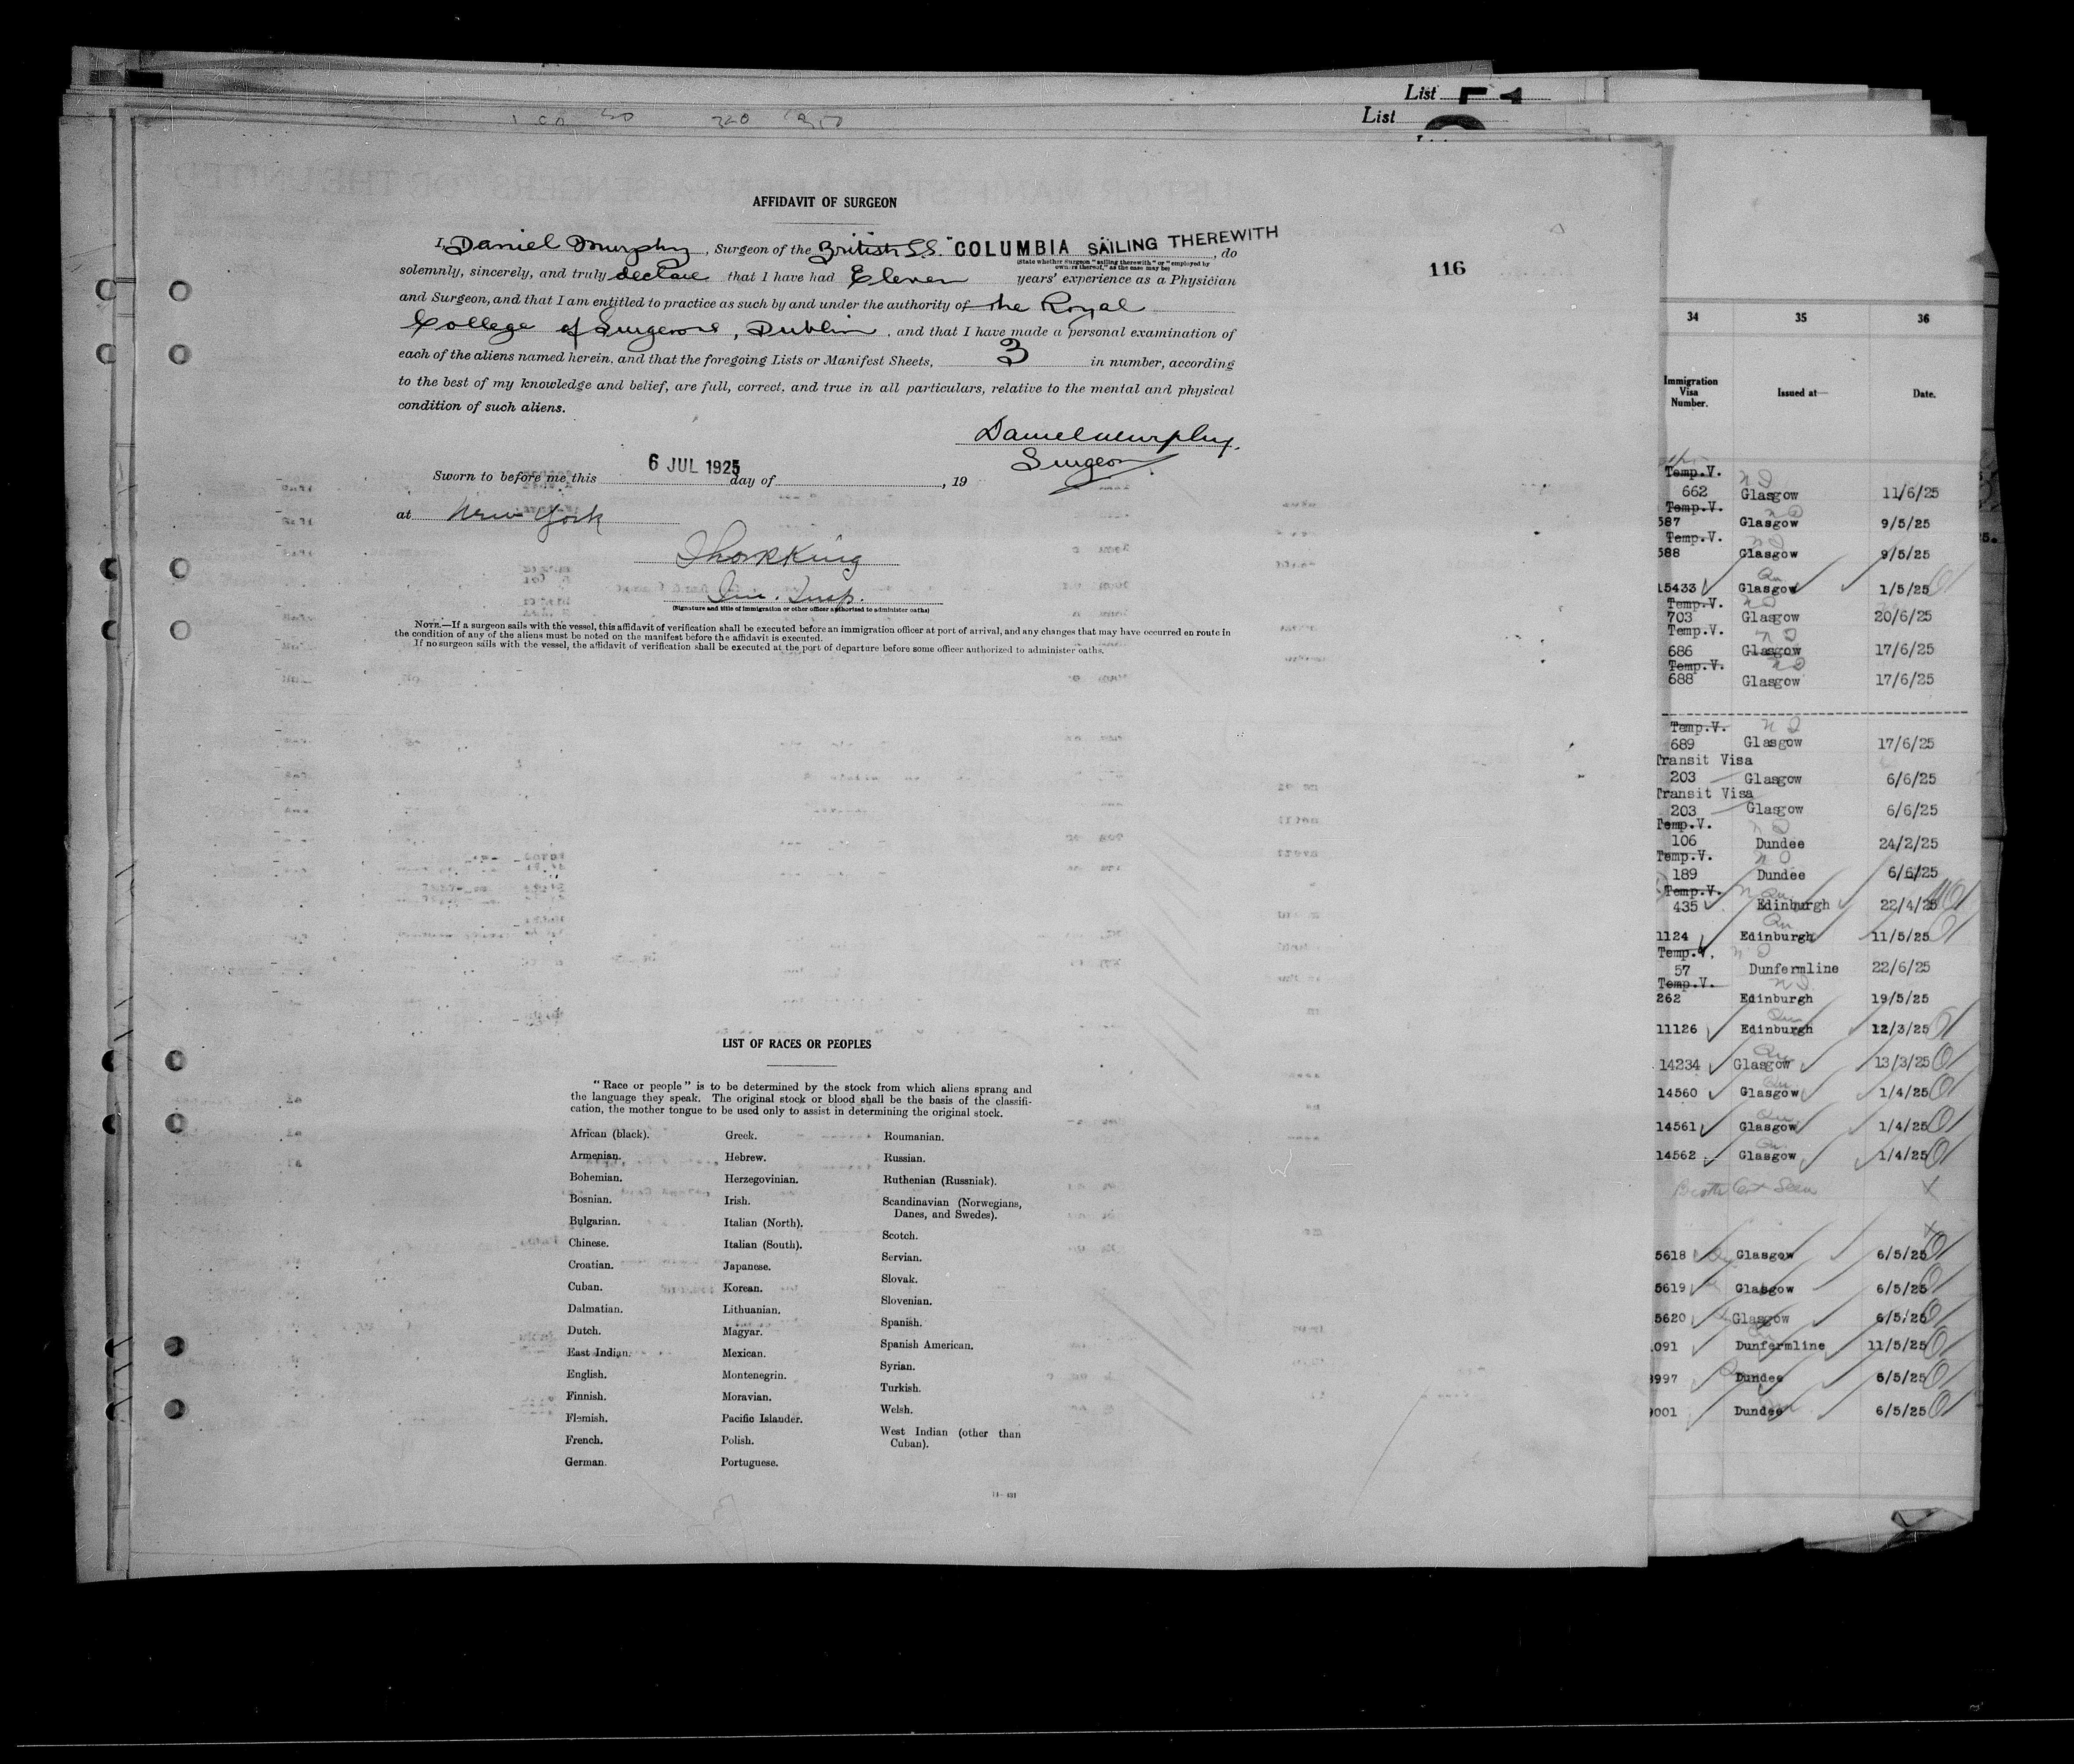 List 51
List
AFFIDAVIT OF SURGEON
I, Daniel Murphy, Surgeon of the British S.S. "COLUMBIA" SAILING THEREWITH, do
(State whether surgeon "sailing therewith" or "employed by
owners thereof," as the case may be)
solemnly, sincerely, and truly declare that I have had Eleven years' experience as a Physician
and Surgeon, and that I am entitled to practice as such by and under the authority of the Royal
College of Surgeons, Dublin, and that I have made a personal examination of
each of the aliens named herein, and that the foregoing Lists or Manifest Sheets, 3 in number, according
to the best of my knowledge and belief, are full, correct, and true in all particulars, relative to the mental and physical
condition of such aliens.
Daniel Murphy.
Surgeon
Sworn to before me this 6 JUL 1925 day of , 19
at New York
King
Im. Insp.
(Signature and title of immigration or other officer authorized to administer oaths)
NOTE.—If a surgeon sails with the vessel, this affidavit of verification shall be executed before an immigration officer at port of arrival, and any changes that may have occurred en route in
the condition of any of the aliens must be noted on the manifest before the affidavit is executed.
If no surgeon sails with the vessel, the affidavit of verification shall be executed at the port of departure before some officer authorized to administer oaths.
116
LIST OF RACES OR PEOPLES
"Race or people" is to be determined by the stock from which aliens sprang and
the language they speak. The original stock or blood shall be the basis of the classifi-
cation, the mother tongue to be used only to assist in determining the original stock.
African (black).
Armenian.
Bohemian.
Bosnian.
Bulgarian.
Chinese.
Croatian.
Cuban.
Dalmatian.
Dutch.
East Indian.
English.
Finnish.
Flemish.
French.
German.
Greek.
Hebrew.
Herzegovinian.
Irish.
Italian (North).
Italian (South).
Japanese.
Korean.
Lithuanian.
Magyar.
Mexican.
Montenegrin.
Moravian.
Pacific Islander.
Polish.
Portuguese.
Roumanian.
Russian.
Ruthenian (Russniak).
Scandinavian (Norwegians,
Danes, and Swedes).
Scotch.
Servian.
Slovak.
Slovenian.
Spanish.
Spanish American.
Syrian.
Turkish.
Welsh.
West Indian (other than
Cuban).
34 35 36
Immigration
Visa
Number. Issued at— Date.
Temp.V. N D
662 Glasgow 11/6/25
Temp.V. N D
587 Glasgow 9/5/25
Temp.V. N D
588 Glasgow 9/5/25
Qu
15433 Glasgow 1/5/25
Temp.V. N D
703 Glasgow 20/6/25
Temp.V. N D
686 Glasgow 17/6/25
Temp.V. N D
688 Glasgow 17/6/25
Temp.V. N D
689 Glasgow 17/6/25
Transit Visa
203 Glasgow 6/6/25
Transit Visa
203 Glasgow 6/6/25
Temp.V. N D
106 Dundee 24/2/25
Temp.V. N D
189 Dundee 6/6/25
Temp.V. Qu
435 Edinburgh 22/4/25
Qu
1124 Edinburgh 11/5/25
Temp.V. N D
57 Dunfermline 22/6/25
Temp.V. N D
262 Edinburgh 19/5/25
Qu
11126 Edinburgh 12/3/25
Qu
14234 Glasgow 13/3/25
Qu
14560 Glasgow 1/4/25
Qu
14561 Glasgow 1/4/25
Qu
14562 Glasgow 1/4/25
Birth Cert Seen X
X
5618 Glasgow 6/5/25
5619 Glasgow 6/5/25
5620 Glasgow 6/5/25
091 Dunfermline 11/5/25
9997 Dundee 6/5/25
001 Dundee 6/5/25